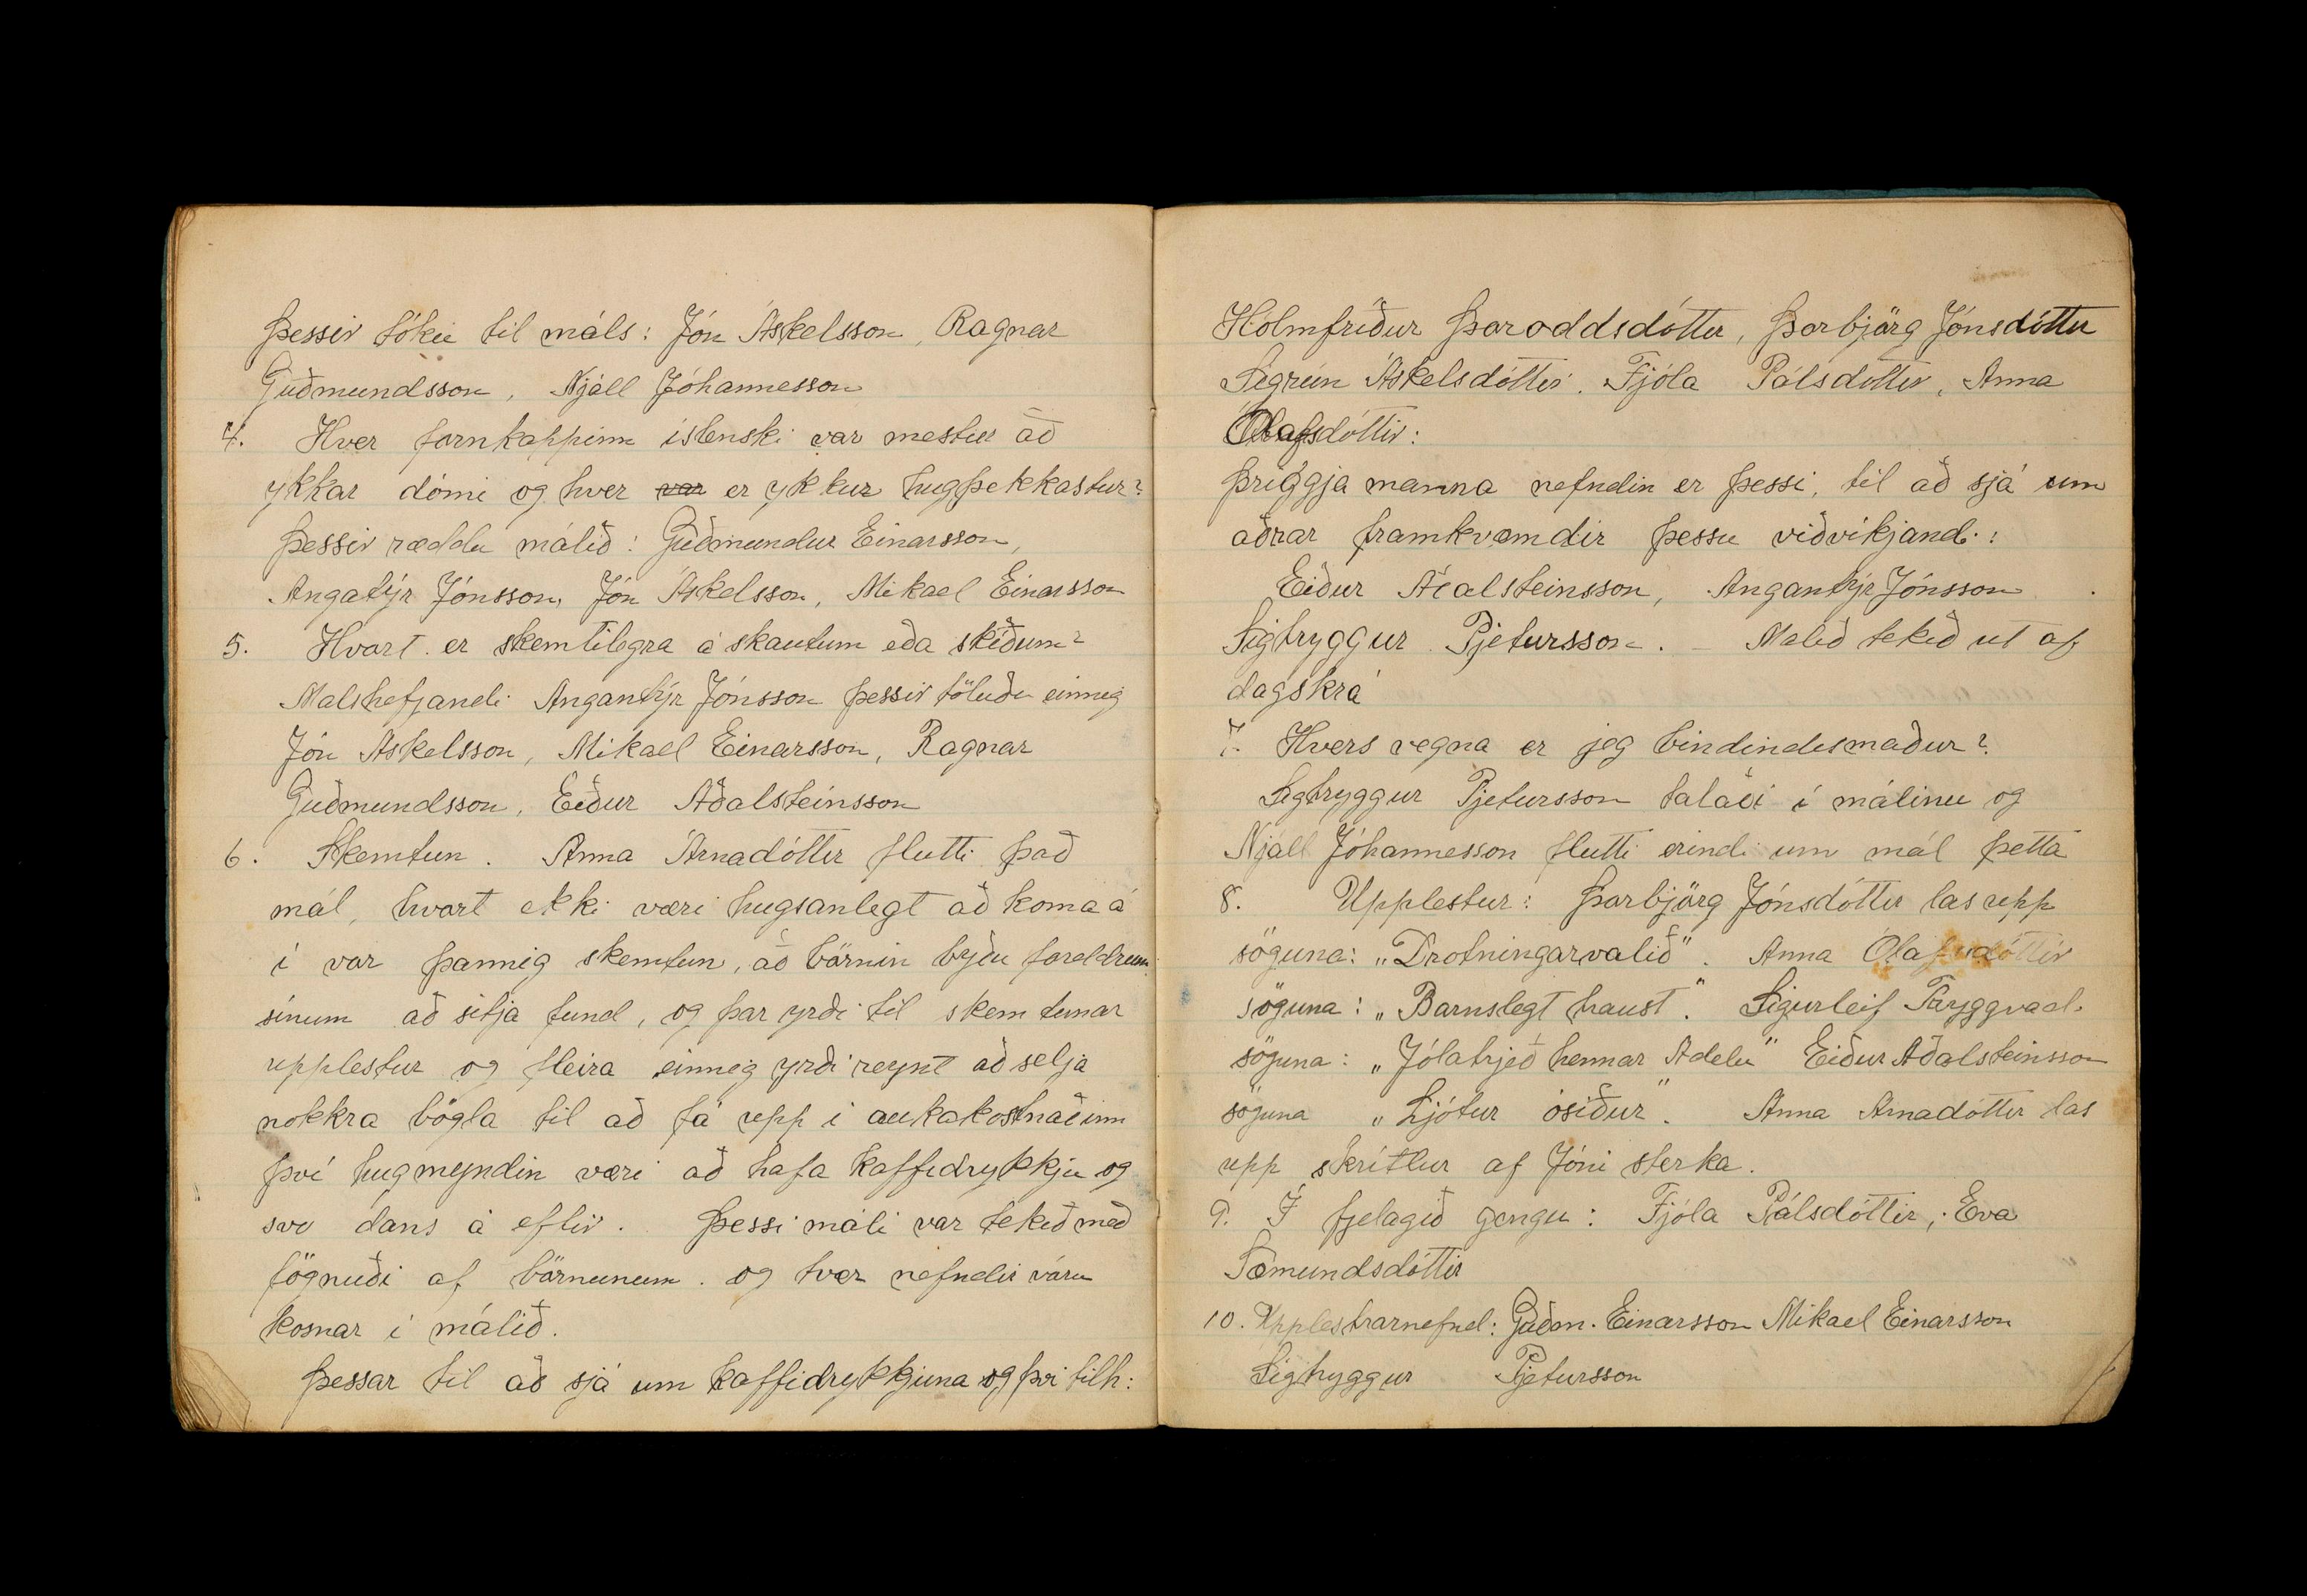 Þessir tóku til máls: Jón Áskelsson, Ragnar
Guðmundsson, Njáll Jóhannesson
4. Hver fornkappinn íslenski var mestur að
ykkar dómi og hver var er ykkur hugþekkastur?
Þessir ræddu málið: Guðmundur Einarsson,
Angatýr Jónsson, Jón Áskelsson, Mikael Einarsson
5. Hvort er skemtilegra á skautum eða skíðum?
Malshefjandi Angantýr Jónsson þessir töluðu einnig
Jón Askelsson, Mikael Einarsson, Ragnar
Guðmundsson, Eiður Aðalsteinsson
6. Skemtun. Anna Árnadóttir flutti það
mál, hvort ekki væri hugsanlegt að koma á
í vor þannig skemtun, að börnin byðu foreldrum
sínum að sitja fund, og þar yrði til skemtunar
upplestur og fleira einnig yrði reynt að selja
nokkra bögla til að fá upp í aukakostnaðinn
því hugmyndin væri að hafa kaffidrykkju og
svo dans á eftir. Þessi máli var tekið með
fögnuði af börnunum. og tvær nefndir vóru
kosnar í málið.
Þessar til að sjá um kaffidrykkjuna og því tilh:
Hólmfríður Þoroddsdóttir, Þorbjörg Jónsdóttir
Sigrún Áskelsdóttir. Fjóla Pálsdóttir, Anna
Ólafsdóttir:
Þriggja manna nefndin er þessi, til að sjá um
aðrar framkvæmdir þessu viðvíkjandi:
Eiður Aðalsteinsson, Angantýr Jónsson
Sigtryggur Pjetursson. – Malið tekið út af
dagskrá
7. Hvers vegna er jeg bindindismaður?
Sigtryggur Pjetursson talaði í málinu og
Njáll Jóhannesson flutti erindi um mál þetta
8. Upplestur: Þorbjörg Jónsdóttir las upp
söguna: „Drotningarvalið". Anna Ólafsdóttir
söguna: „Barnslegt traust". Sigurleif Tryggvad.
söguna: „Jólatrjeð hennar Adelu" Eiður Aðalsteinsson
söguna „Ljótur ósiður". Anna Árnadóttir las
upp skrítlur af Jóni sterka.
9. Í fjelagið gengu: Fjóla Pálsdóttir, Eva
Sæmundsdóttir
10. Upplestrarnefnd: Guðm. Einarsson Mikael Einarsson
Sigtryggur Pjetursson